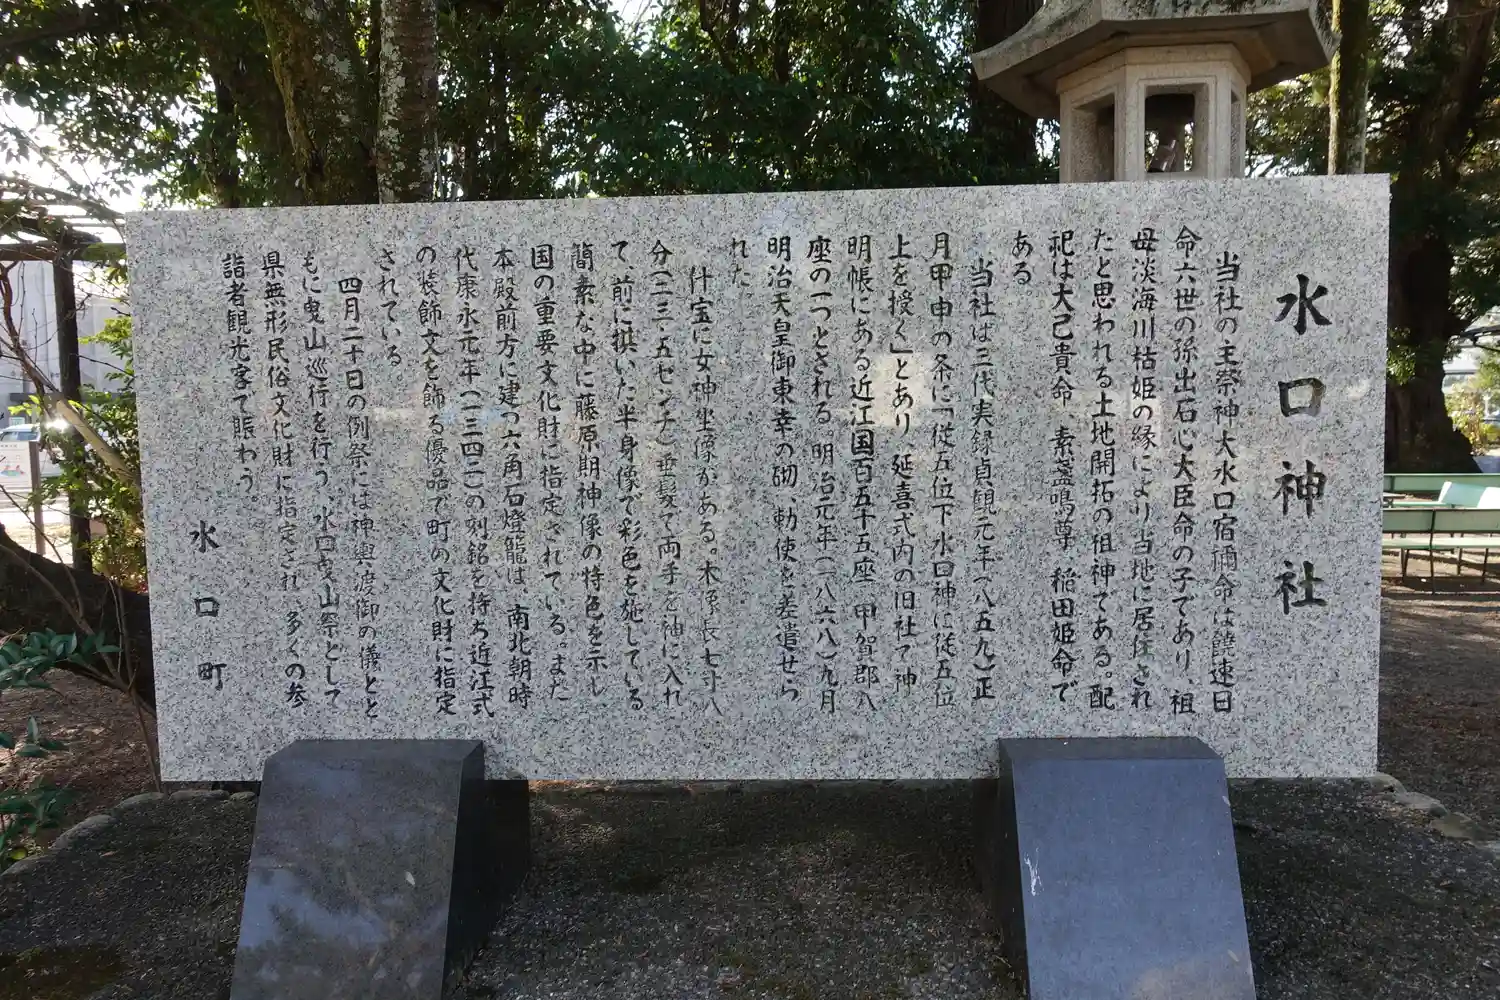 水口神社
当社の主祭神大水口宿禰命は饒速日
命六世の孫出石心大臣命の子であり、祖
母淡海川枯姫の縁により当地に居住され
たと思われる土地開拓の祖神である。配
祀は大己貴命、素盞嗚尊、稲田姫命で
ある。
当社は三代実録貞観元年(八五九)正
月甲申の条に「従五位下水口神に従五位
上を授く」とあり、延喜式内の旧社で神
明帳にある近江国百五十五座、甲賀郡八
座の一つとされる。明治元年(一八六八)九月
明治天皇御東幸の砌、勅使を差遣せら
れた。
什宝に女神坐像がある。木像長七寸八
分(二三・五センチ)垂髪で両手を袖に入れ
て、前に拱いた半身像で彩色を施している
簡素な中に藤原期神像の特色を示し、
国の重要文化財に指定されている。また
本殿前方に建つ六角石燈籠は、南北朝時
代康永元年(一三四二)の刻銘を持ち近江式
の装飾文を飾る優品で町の文化財に指定
されている。
四月二十日の例祭には神輿渡御の儀とと
もに曳山巡行を行う、水口曳山祭として
県無形民俗文化財に指定され、多くの参
詣者観光客で賑わう。
水口町